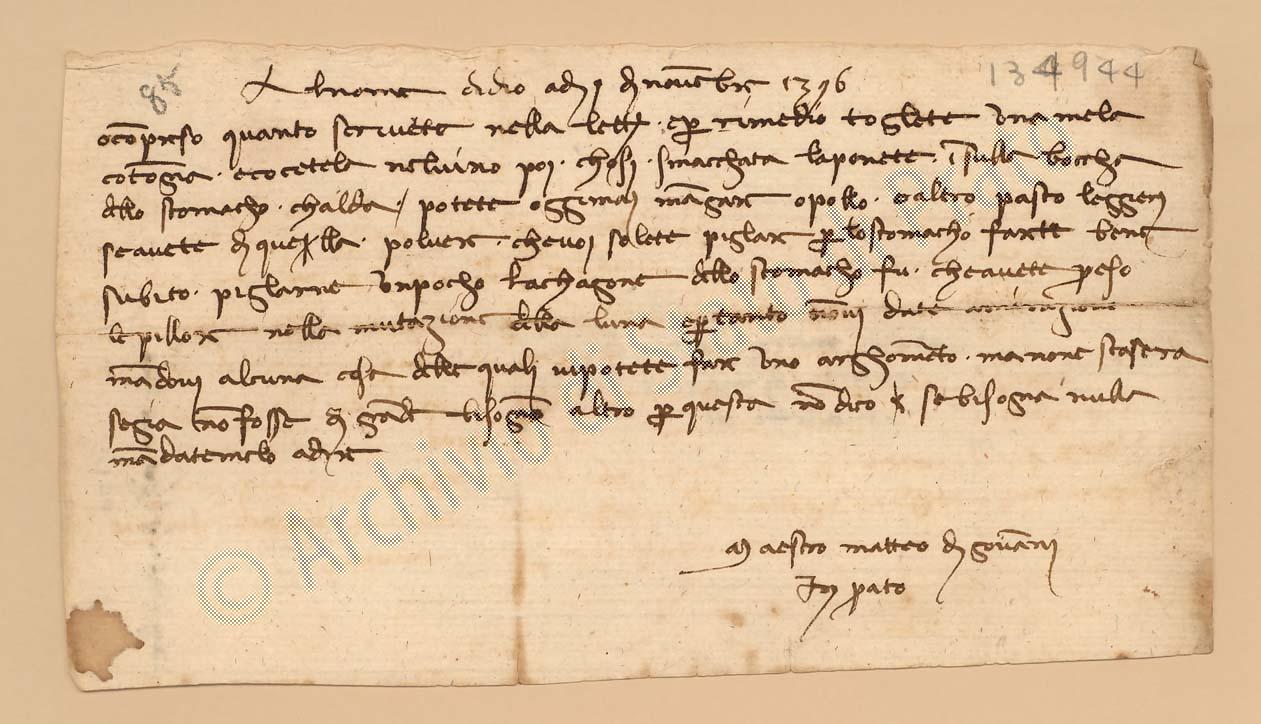 88
134944
Al nome di dio adi 1 di novenbre 1396
o conpreso quanto scrivete nella lett. e per rimedio togliete una mela
cotogna e cocetela nel vino poi chosi smacchata la ponete in sulla boccha
dello stomacho chalda / potete oggimai mangare o pollo o altro pasto leggeri
se avete di quella polvere che voi solete piglare per lo stomacho farete bene
subito piglarne un pocho la chagone dello stomacho fu che avete preso
le pillore nella mutazione della luna e pertanto non vi date
mandovi alcuna cosa delle quali vi potete fare uno arghomento ma none stasera
se gia non fosse di grande bisogno altro per questa non dico se bisogna nulla
mandatemelo a dire
Maestro matteo di govanni
In prato
© Archivio di Stato Prato